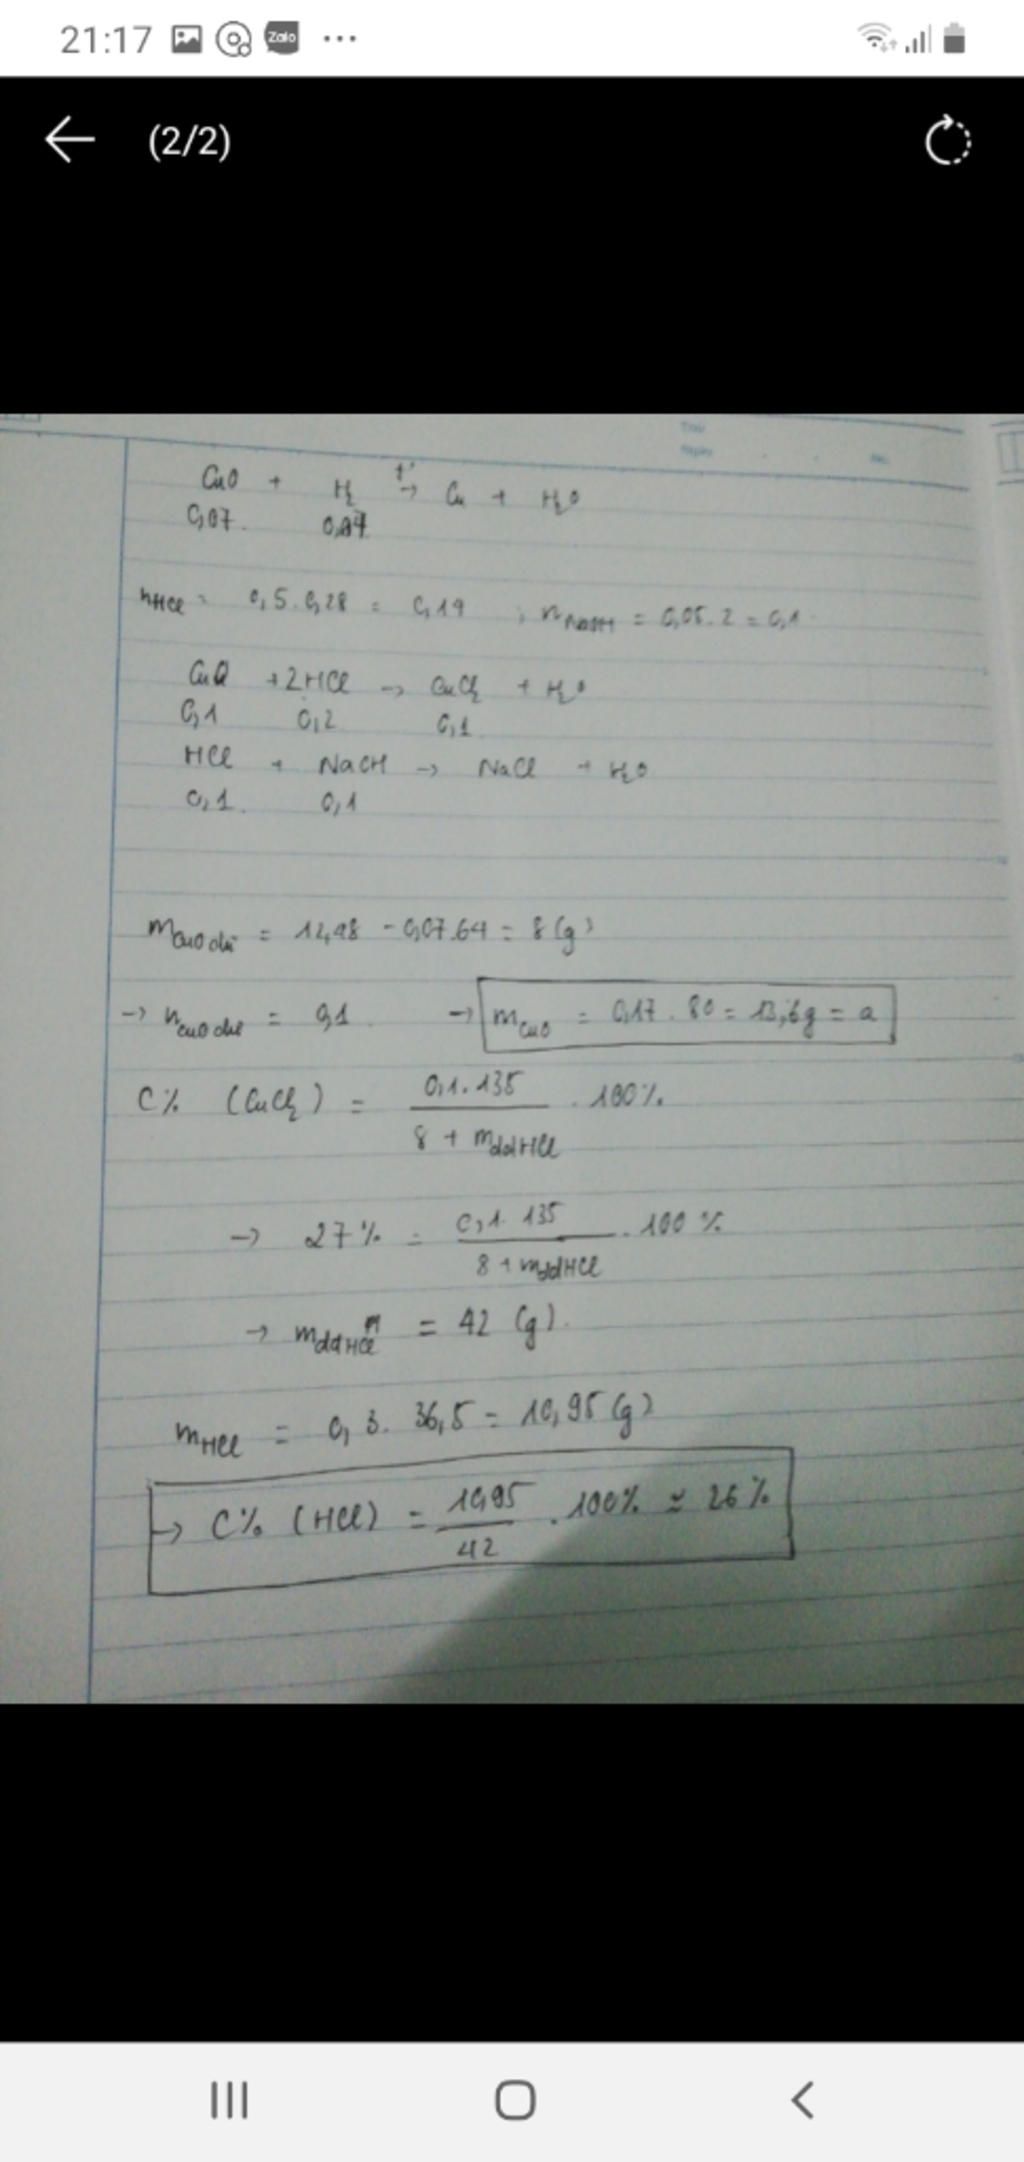 21:17 Zalo ...
(2/2)
CuO + H₂ t° → Cu + H₂O
0,07. 0,07
nHCl = 0,5.0,28 = 0,19 ; nNaOH = 0,05.2 = 0,1.
CuO + 2HCl → CuCl₂ + H₂O
0,1 0,2 0,1
HCl + NaOH → NaCl + H₂O
0,1. 0,1
mCuO dư = 12,48 - 0,07.64 = 8 (g)
→ nCuO dư = 0,1 → mCuO = 0,17 . 80 = 13,6g = a
C% (CuCl₂) = 0,1.135 / 8 + mddHCl . 100%
→ 27% = 0,1.135 / 8 + mddHCl . 100%
→ mddHCl = 42 (g).
mHCl = 0,3. 36,5 = 10,95 (g)
→ C% (HCl) = 10,95 / 42 . 100% ≃ 26%